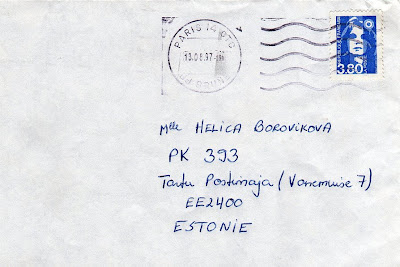 PARIS 14 CTC
13.08.97
Bd BRUNE
3,80
Mlle HELICA BOROVIKOVA
PK 393
Tartu Postimaja (Vanemuise 7)
EE2400
ESTONIE